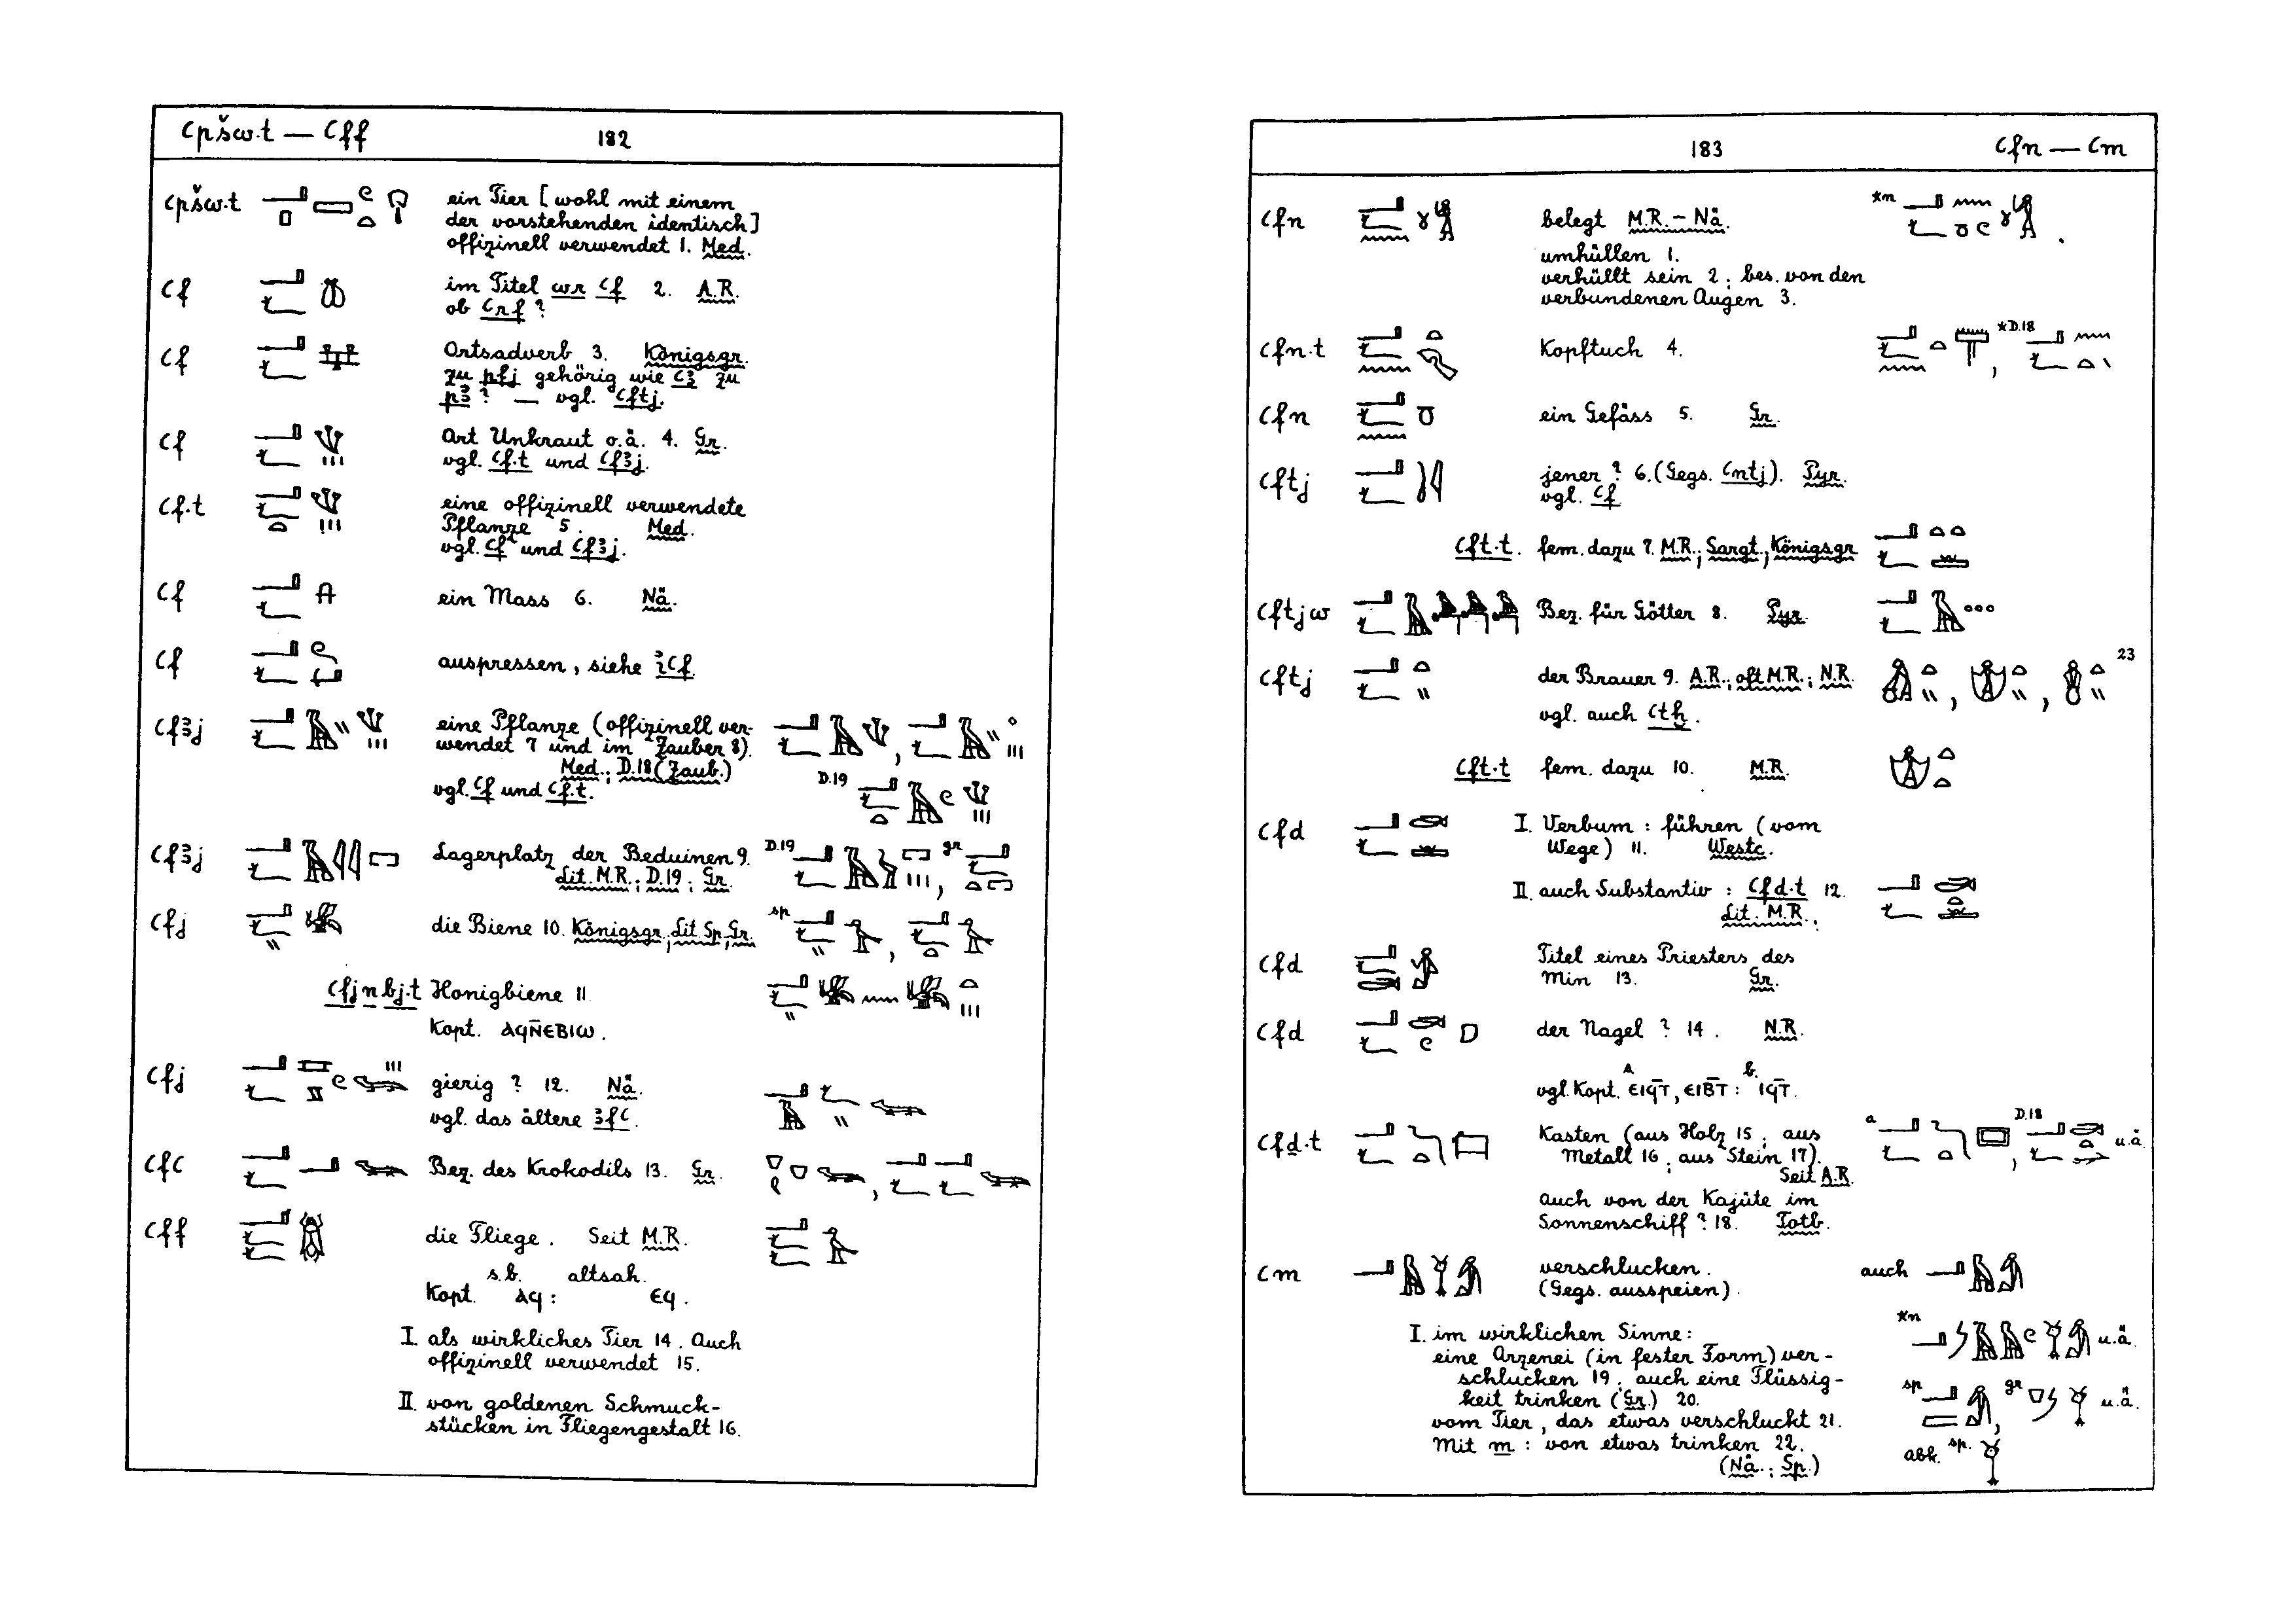 ꜥpšw.t — ꜥff 182
ꜥpšw.t ein Tier [wohl mit einem
der vorstehenden identisch]
offizinell verwendet 1. Med.
ꜥf im Titel wr ꜥf 2. A.R.
ob ꜥrf ?
ꜥf Ortsadverb 3. Königsgr.
zu pfj gehörig wie ꜥꜣ zu
pꜣ ? — vgl. ꜥftj.
ꜥf Art Unkraut o.ä. 4. Gr.
vgl. ꜥf.t und ꜥfꜣj.
ꜥf.t eine offizinell verwendete
Pflanze 5. Med.
vgl. ꜥf und ꜥfꜣj.
ꜥf ein Mass 6. Nä.
ꜥf auspressen, siehe ꞽꜥf.
ꜥfꜣj eine Pflanze (offizinell ver-
wendet 7 und im Zauber 8).
Med.; D.18 (Zaub.)
D.19
vgl. ꜥf und ꜥf.t.
ꜥfꜣj Lagerplatz der Beduinen 9. D.19 gr
Lit. M.R.; D.19; Gr.
ꜥfj die Biene 10. Königsgr., Lit. Sp., Gr. sp
ꜥfj n bj.t Honigbiene 11
Kopt. ⲁϥⲛ̄ⲉⲃⲓⲱ.
ꜥfj gierig ? 12. Nä.
vgl. das ältere ꜣfꜥ.
ꜥfꜥ Bez. des Krokodils 13. Gr.
ꜥff die Fliege. Seit M.R.
s.b. altsah.
Kopt. ⲁϥ: ⲉϥ.
I. als wirkliches Tier 14. Auch
offizinell verwendet 15.
II. von goldenen Schmuck-
stücken in Fliegengestalt 16.
183 ꜥfn — ꜥm
ꜥfn belegt M.R. – Nä. *n
umhüllen 1.
verhüllt sein 2; bes. von den
verbundenen Augen 3.
ꜥfn.t Kopftuch 4. *D.18
ꜥfn ein Gefäss 5. Gr.
ꜥftj jener ? 6. (Gegs. ꜥntj). Pyr.
vgl. ꜥf
ꜥft.t. fem. dazu 7. M.R.; Sargt., Königsgr
ꜥftjw Bez. für Götter 8. Pyr.
ꜥftj der Brauer 9. A.R.; oft M.R.; N.R. 23
vgl. auch ꜥtḫ.
ꜥft.t fem. dazu 10. M.R.
ꜥfd I. Verbum: führen (vom
Wege) 11. Westc.
II. auch Substantiv: ꜥfd.t 12.
Lit. M.R.
ꜥfd Titel eines Priesters des
Min 13. Gr.
ꜥfd der Nagel ? 14. N.R.
A b.
vgl. Kopt. ⲉⲓϥⲧ̄, ⲉⲓⲃⲧ̄: ⲓϥⲧ̄.
ꜥfḏ.t Kasten (aus Holz 15; aus a D.18 u.ä
Metall 16; aus Stein 17).
Seit A.R.
auch von der Kajüte im
Sonnenschiff ? 18. Totb.
ꜥm verschlucken. auch
(Gegs. ausspeien).
I. im wirklichen Sinne: *n u.ä.
eine Arzenei (in fester Form) ver-
schlucken 19; auch eine Flüssig-
keit trinken (Gr.) 20. sp gr u.ä.
vom Tier, das etwas verschluckt 21.
Mit m: von etwas trinken 22. abk. sp.
(Nä.; Sp.)